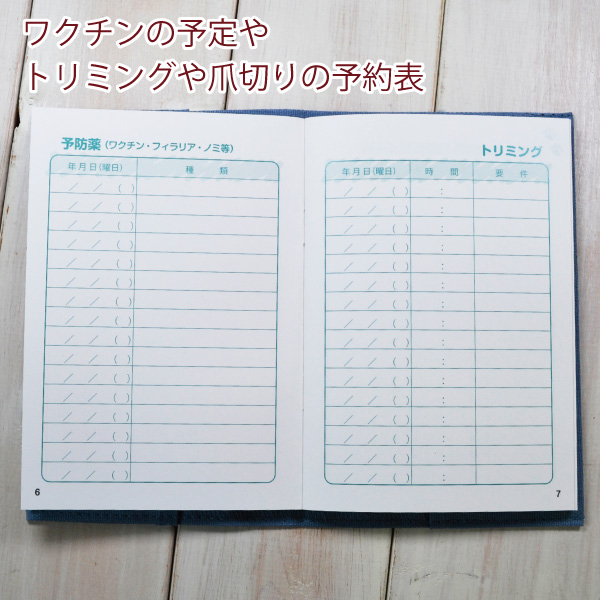 ワクチンの予定や
トリミングや爪切りの予約表
予防薬(ワクチン・フィラリア・ノミ等)
年月日(曜日) 種類
/ / ( )
/ / ( )
/ / ( )
/ / ( )
/ / ( )
/ / ( )
/ / ( )
/ / ( )
/ / ( )
/ / ( )
/ / ( )
/ / ( )
/ / ( )
/ / ( )
/ / ( )
/ / ( )
6
トリミング
年月日(曜日) 時間 要件
/ / ( ) :
/ / ( ) :
/ / ( ) :
/ / ( ) :
/ / ( ) :
/ / ( ) :
/ / ( ) :
/ / ( ) :
/ / ( ) :
/ / ( ) :
/ / ( ) :
/ / ( ) :
/ / ( ) :
/ / ( ) :
/ / ( ) :
/ / ( ) :
7